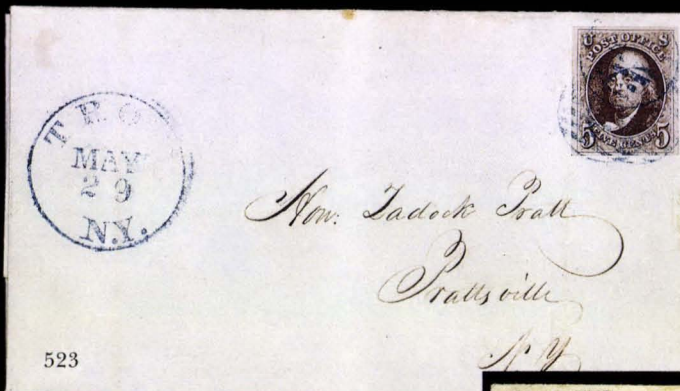 U S
POST OFFICE
5 FIVE CENTS 5
TROY
MAY
29
N.Y.
Hon. Zadock Pratt
Prattsville
N Y
523